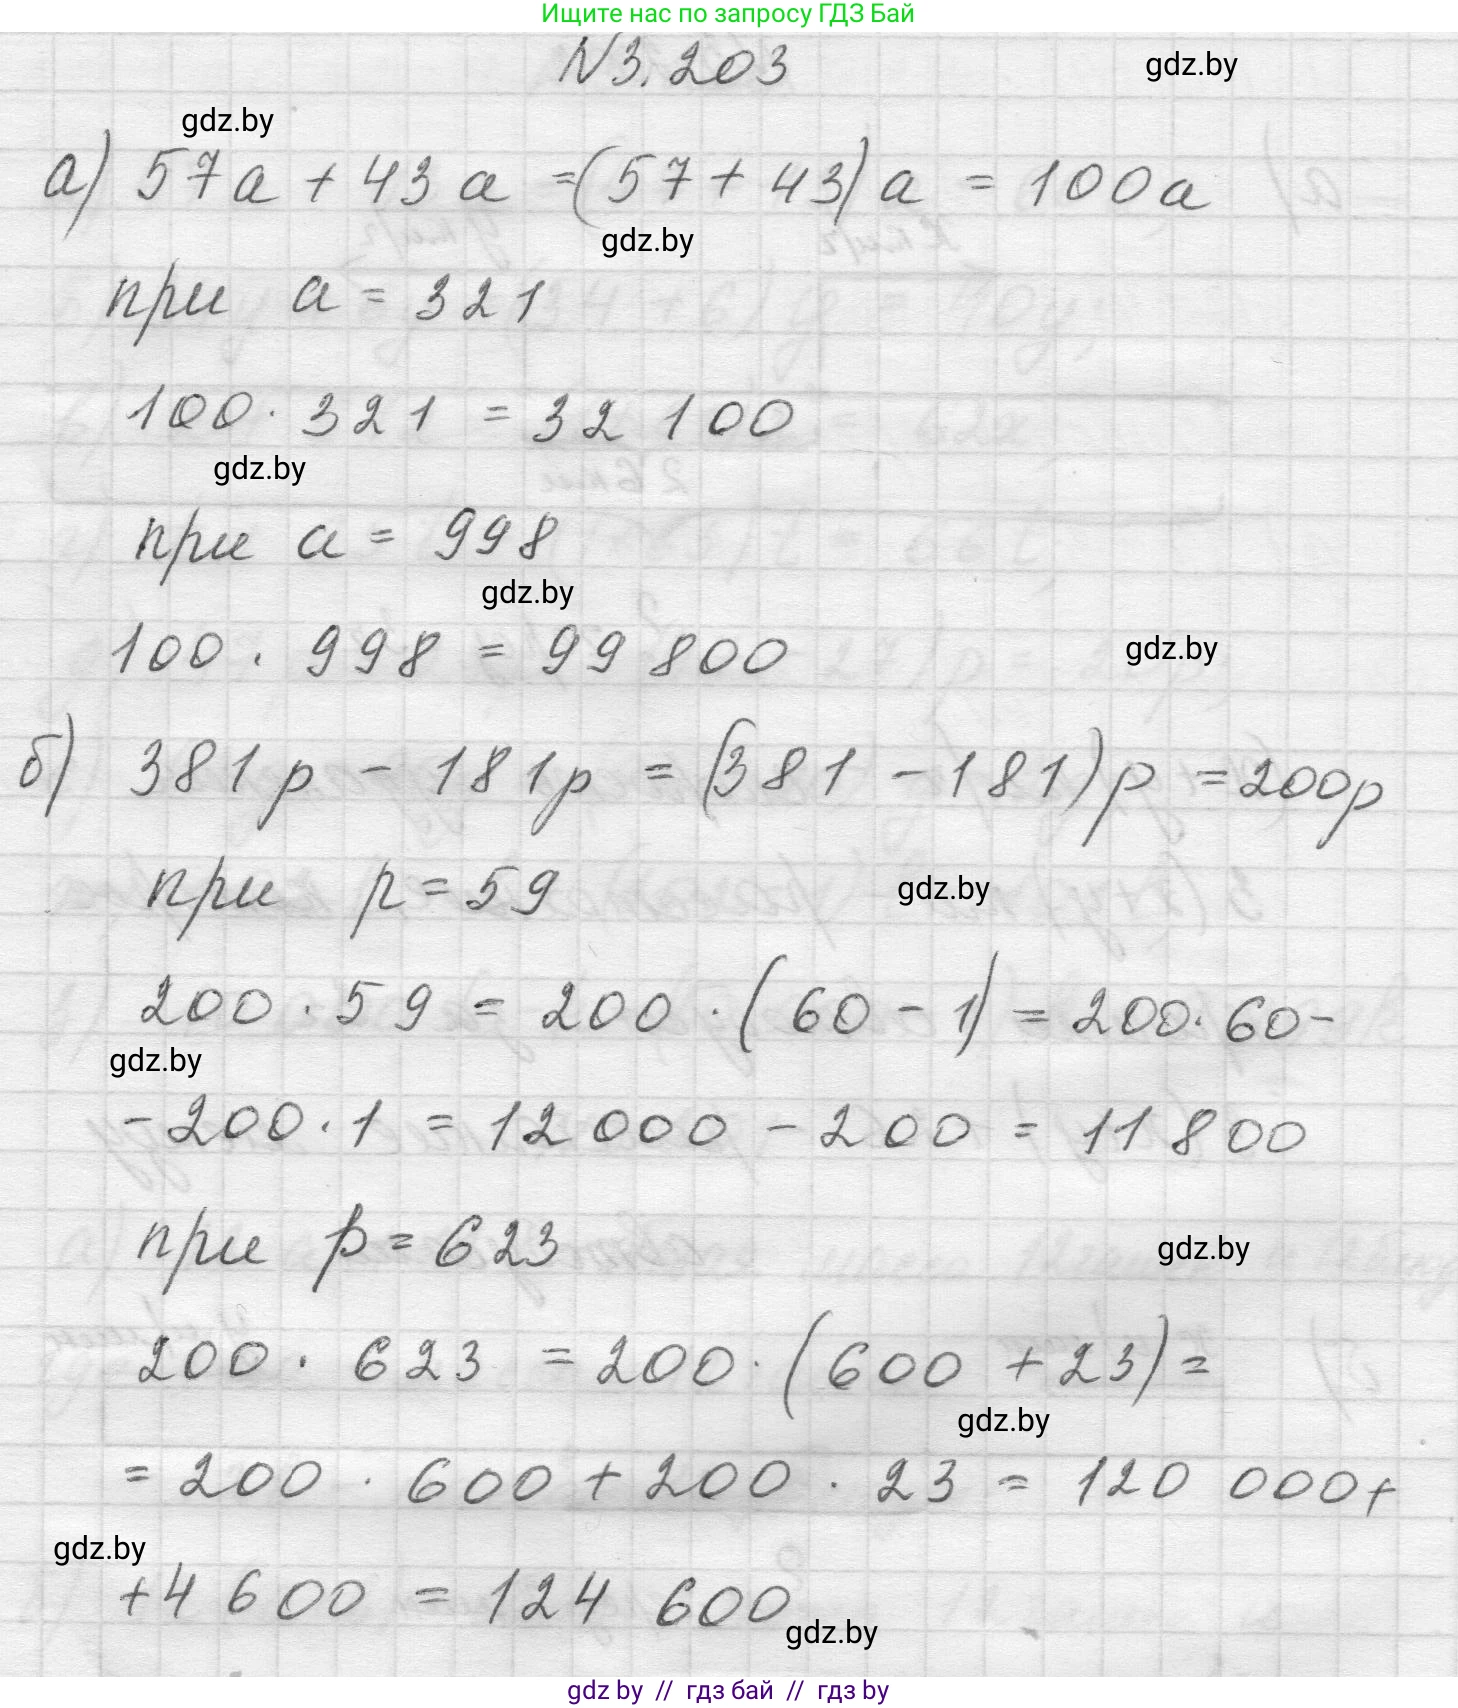 Ищите нас по запросу ГДЗ Бай
N3.203
gdz.by
gdz.by
а) 57a + 43a = (57 + 43)a = 100a
gdz.by
при a = 321
100 · 321 = 32 100
gdz.by
при a = 998
gdz.by
100 · 998 = 99 800
gdz.by
б) 381p - 181p = (381 - 181)p = 200p
при p = 59
gdz.by
200 · 59 = 200 · (60 - 1) = 200 · 60 -
gdz.by
- 200 · 1 = 12 000 - 200 = 11 800
при p = 623
gdz.by
200 · 623 = 200 · (600 + 23) =
gdz.by
= 200 · 600 + 200 · 23 = 120 000 +
gdz.by
+ 4 600 = 124 600
gdz.by
gdz by // гдз бай // гдз by